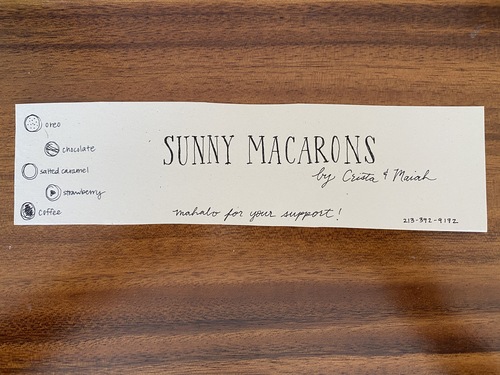 oreo
chocolate
salted caramel
strawberry
coffee
SUNNY MACARONS
by Crista & Maiah
mahalo for your support!
213-392-9192